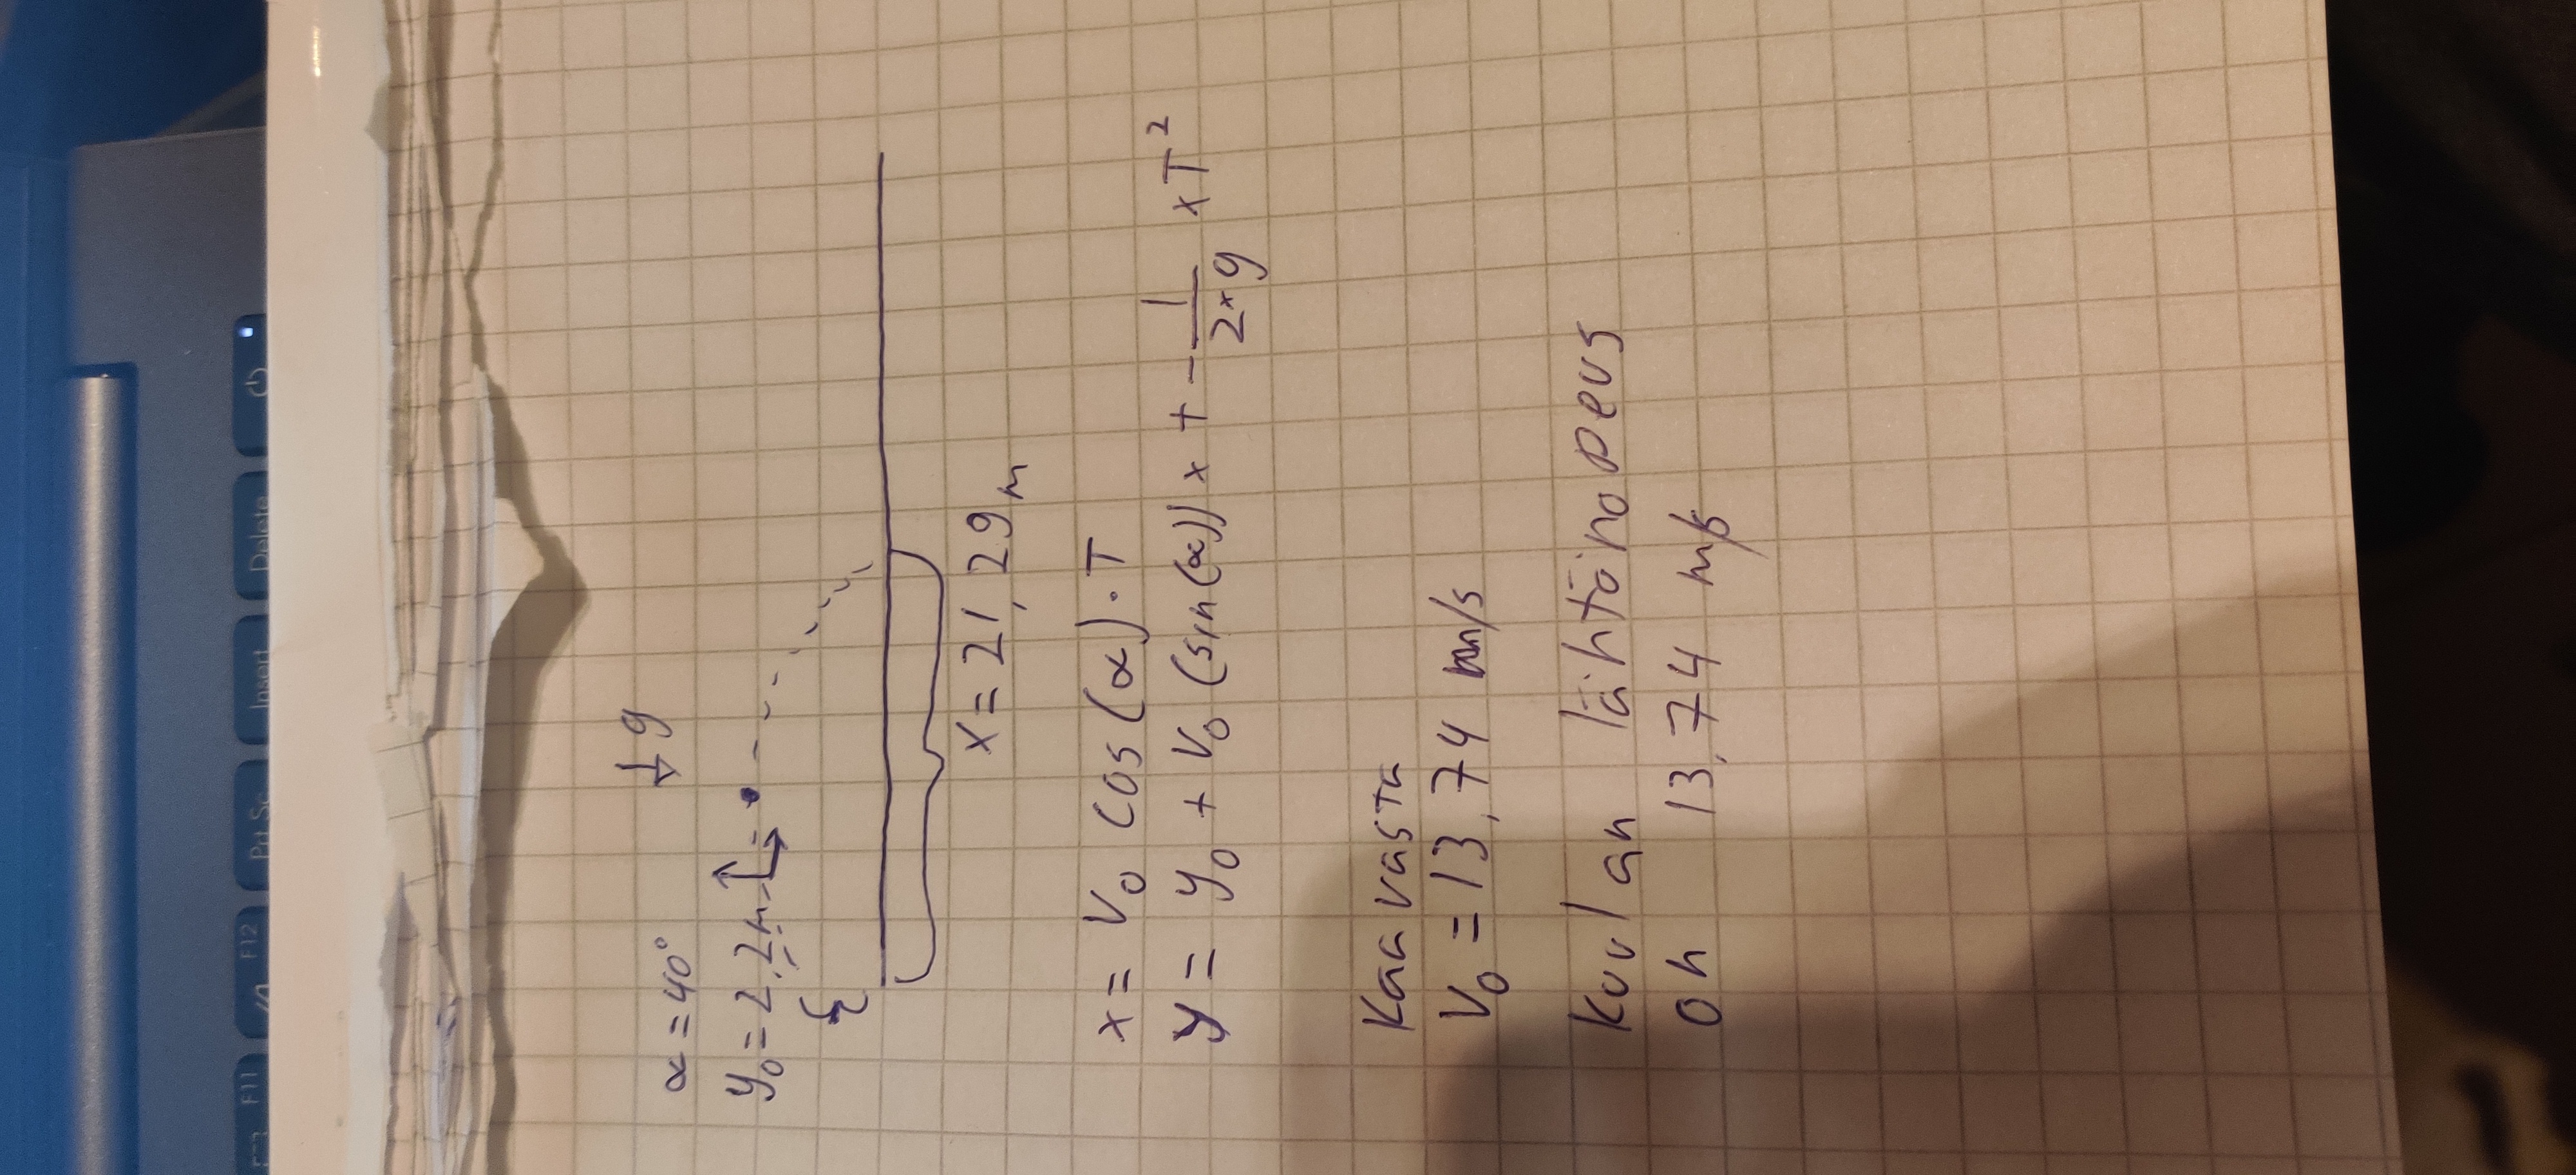 F11 F12 Prt Sc Insert Delete
↓ g
α = 40°
y₀ = 2,2m
x = 21,29 m
x = V₀ cos(α) · T
y = y₀ + V₀ (sin(α)) x + - 1/(2×g) × T²
Kaavasta
V₀ = 13,74 m/s
Kuulan lähtönopeus
on 13,74 m/s